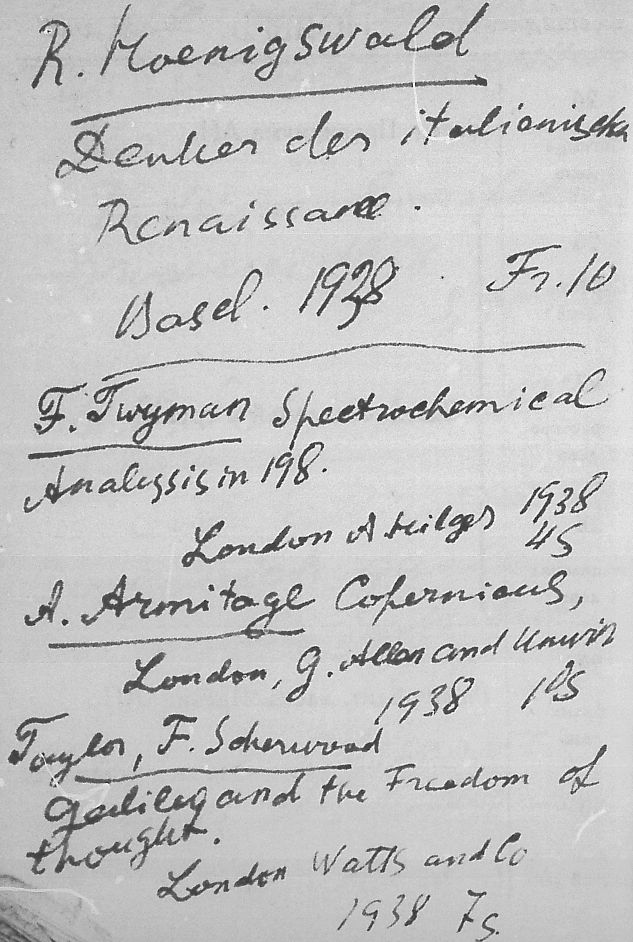 R. Hoenigswald
Denker der italienischen
Renaissance.
Basel. 1938 Fr. 10
F. Twyman Spectrochemical
Analysis in 198.
London A Hilger 1938
4s
A. Armitage Copernicus,
London, G. Allan and Unwin
1938 10s
Taylor, F. Scherwood
Galiley and the Freedom of
thought.
London Watts and Co
1938 7s.